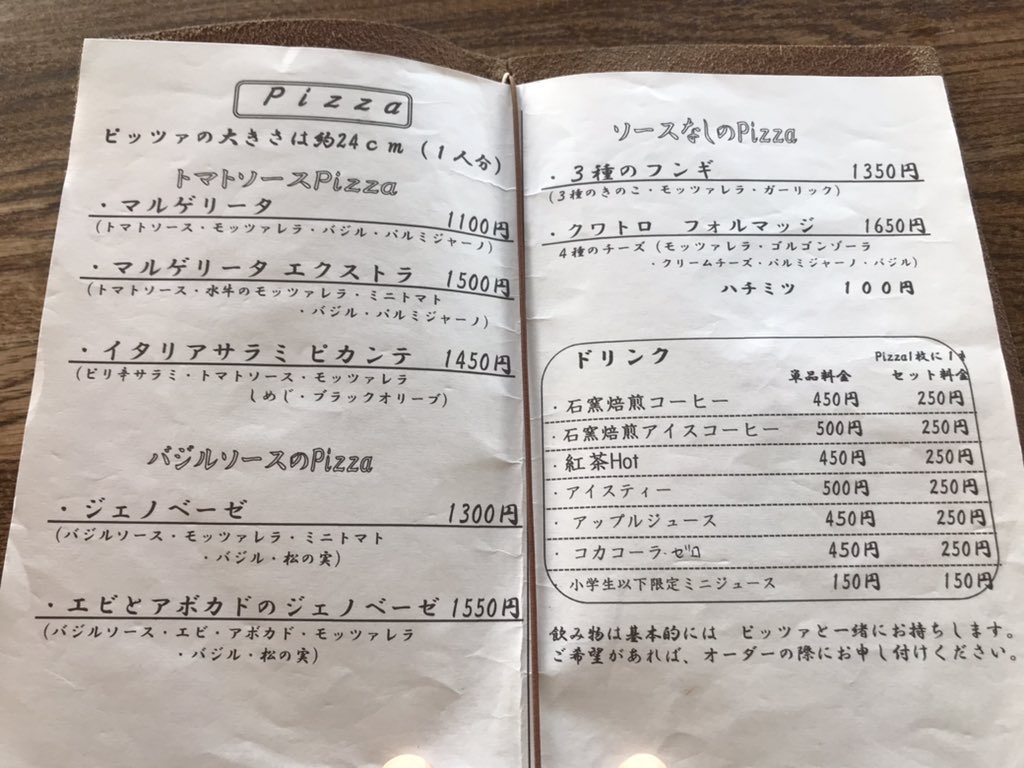 Pizza
ピッツァの大きさは約24cm(1人分)
トマトソースPizza
・マルゲリータ 1100円
(トマトソース・モッツァレラ・バジル・パルミジャーノ)
・マルゲリータ エクストラ 1500円
(トマトソース・水牛のモッツァレラ・ミニトマト
・バジル・パルミジャーノ)
・イタリアサラミ ピカンテ 1450円
(ピリ辛サラミ・トマトソース・モッツァレラ
しめじ・ブラックオリーブ)
バジルソースのPizza
・ジェノベーゼ 1300円
(バジルソース・モッツァレラ・ミニトマト
・バジル・松の実)
・エビとアボカドのジェノベーゼ 1550円
(バジルソース・エビ・アボカド・モッツァレラ
・バジル・松の実)
ソースなしのPizza
・3種のフンギ 1350円
(3種のきのこ・モッツァレラ・ガーリック)
・クワトロ フォルマッジ 1650円
4種のチーズ(モッツァレラ・ゴルゴンゾーラ
・クリームチーズ・パルミジャーノ・バジル)
ハチミツ 100円
ドリンク Pizza1枚に1
単品料金 セット料金
・石窯焙煎コーヒー 450円 250円
・石窯焙煎アイスコーヒー 500円 250円
・紅茶Hot 450円 250円
・アイスティー 500円 250円
・アップルジュース 450円 250円
・コカコーラ ゼロ 450円 250円
・小学生以下限定ミニジュース 150円 150円
飲み物は基本的には ピッツァと一緒にお持ちします。
ご希望があれば、オーダーの際にお申し付けください。